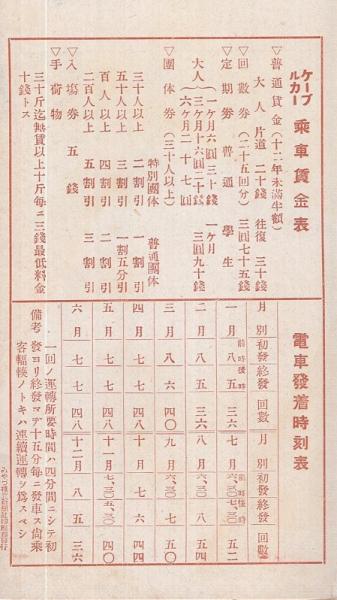 ケーブルカー 乗車賃金表
▽普通賃金(十二年未満半額)
大人 片道 二十錢 往復 三十錢
▽回數券(二十五回分) 三圓七十五錢
▽定期券 普通 學生
大人
一ケ月六圓三十錢 一ケ月
三ケ月十六圓二十錢 三圓九十錢
六ケ月二十七圓
▽團体券(三十人以上)
特別團体 普通團体
三十人以上 二割引 一割引
五十人以上 三割引 一割五分引
百人以上 四割引 二割引
二百人以上 五割引 三割引
▽入場券 五錢
▽手荷物
三十斤迄無賃以上十斤每ニ三錢最低料金
十錢トス
電車發着時刻表
月別 初發 終發 回數 月別 初發 終發 回數
一月 前時八 後時五 三六 七月 前時七、三〇 後時七、三〇 五二
二月 八 五 三六 八月 七、三〇 八 五四
三月 八 六 四〇 九月 七、三〇 七 五〇
四月 七 七 四八 十月 七 六 四四
五月 七 七 四八 十一月 七、三〇 五、三〇 四〇
六月 七 七 四八 十二月 八 五 三六
備考 一回ノ運轉所要時間ハ四分間ニシテ初
發ヨリ終發マデ十五分每ニ發車ス尙乘
客輻輳ノトキハ連續運轉ヲ爲スベシ